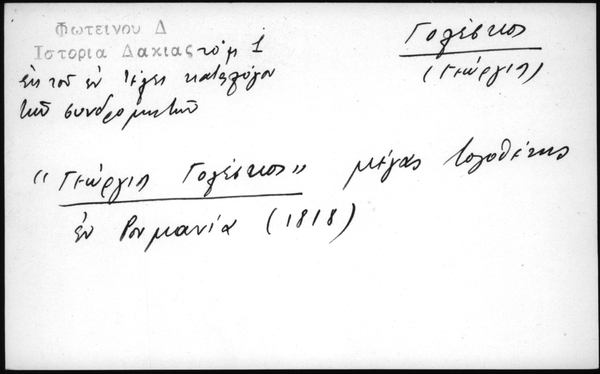 Φωτεινου Δ
Ιστορια Δακιας τόμ 1
εκ του εν τέλει καταλόγου
των συνδρομητών
Γολέσκος
(Γεώργιος)
"Γεώργιος Γολέσκος" μέγας λογοθέτης
εν Ρουμανία (1818)